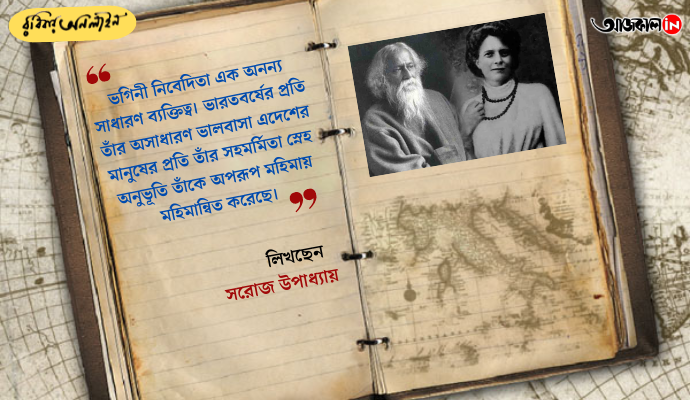 রবিবার অনলাইন
আজকাল in
“
ভগিনী নিবেদিতা এক অনন্য
সাধারণ ব্যক্তিত্ব। ভারতবর্ষের প্রতি
তাঁর অসাধারণ ভালবাসা এদেশের
মানুষের প্রতি তাঁর সহমর্মিতা স্নেহ
অনুভূতি তাঁকে অপরূপ মহিমায়
মহিমান্বিত করেছে। ”
লিখছেন
সরোজ উপাধ্যায়